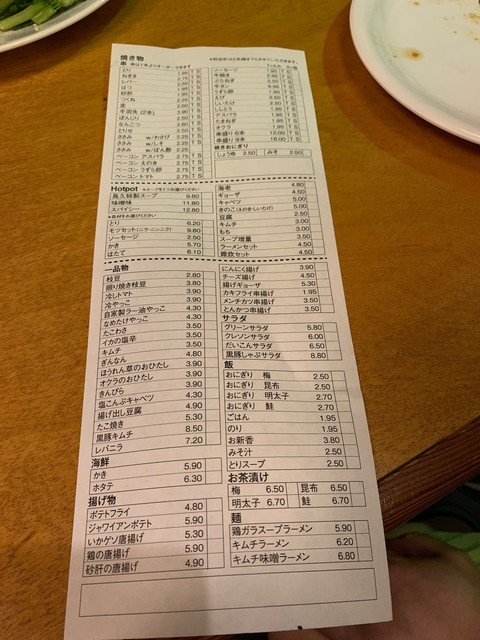 焼き物
串
とり 1.95 T S
ねぎま
レバー
はつ
砂肝
つくね 2.25 T S
皮
手羽先 (2本) 3.90 T S
ぼんじり 2.50 T S
なんこつ
とりせ 2.50 T S
ささみ w/わさび 2.75 T S
ささみ w/しそ 2.25 T S
ささみ w/ぽん酢 2.25 T S
ベーコン アスパラ 2.75 T S
ベーコン えのき 2.75 T S
ベーコン うずら卵 2.75 T S
ベーコン トマト 2.75 T S
ソーセージ 1.95
牛焼き
ぶたねぎ 2.50
牛タン
うずら卵
えび 2.50
しいたけ 2.50
ししとう 1.95
アスパラ
たまねぎ 1.95
オクラ 1.95
串盛り 6本 12.00
串盛り 9本 18.00
焼きおにぎり
しょうゆ 2.50 みそ 2.50
Hotpot
鳥久特製スープ 9.80
味噌味 11.80
スパイシー 12.80
とり 6.20
モツセット(ニラ・ニンニク) 9.80
ソーセージ 2.50
かき 5.70
ほたて 6.10
海老 4.80
ギョーザ 4.50
キャベツ 5.00
きのこ(えのき・しいたけ) 5.00
豆腐 2.50
キムチ 3.00
もち 3.00
スープ増量 3.50
ラーメンセット 4.50
雑炊セット 4.50
一品物
枝豆 2.80
照り焼き枝豆 3.80
冷しトマト 3.90
冷やっこ 3.90
自家製ラー油やっこ 4.30
なめたけやっこ 4.30
たこわさ 3.50
イカの塩辛 3.50
キムチ 4.80
ぎんなん 4.80
ほうれん草のおひたし 3.90
オクラのおひたし 3.90
きんぴら 3.90
塩こんぶキャベツ 4.30
揚げ出し豆腐 4.90
たこ焼き 5.30
黒豚キムチ 8.50
レバニラ 7.20
海鮮
かき 5.90
ホタテ 6.30
揚げ物
ポテトフライ 4.80
ジャワイアンポテト 5.90
いかゲソ唐揚げ 5.30
鶏の唐揚げ 5.90
砂肝の唐揚げ 4.90
にんにく揚げ 3.90
チーズ揚げ 4.50
揚げギョーザ 5.30
カキフライ串揚げ 1.95
メンチカツ串揚げ 3.50
とんかつ串揚げ 3.50
サラダ
グリーンサラダ 5.80
クレソンサラダ 6.00
だいこんサラダ 6.50
黒豚しゃぶサラダ 8.80
飯
おにぎり 梅 2.50
おにぎり 昆布 2.50
おにぎり 明太子 2.70
おにぎり 鮭 2.70
ごはん 1.95
のり 1.95
お新香 3.80
みそ汁 2.50
とりスープ 2.50
お茶漬け
梅 6.50 昆布 6.50
明太子 6.70 鮭 6.70
麺
鶏ガラスープラーメン 5.90
キムチラーメン 6.20
キムチ味噌ラーメン 6.80